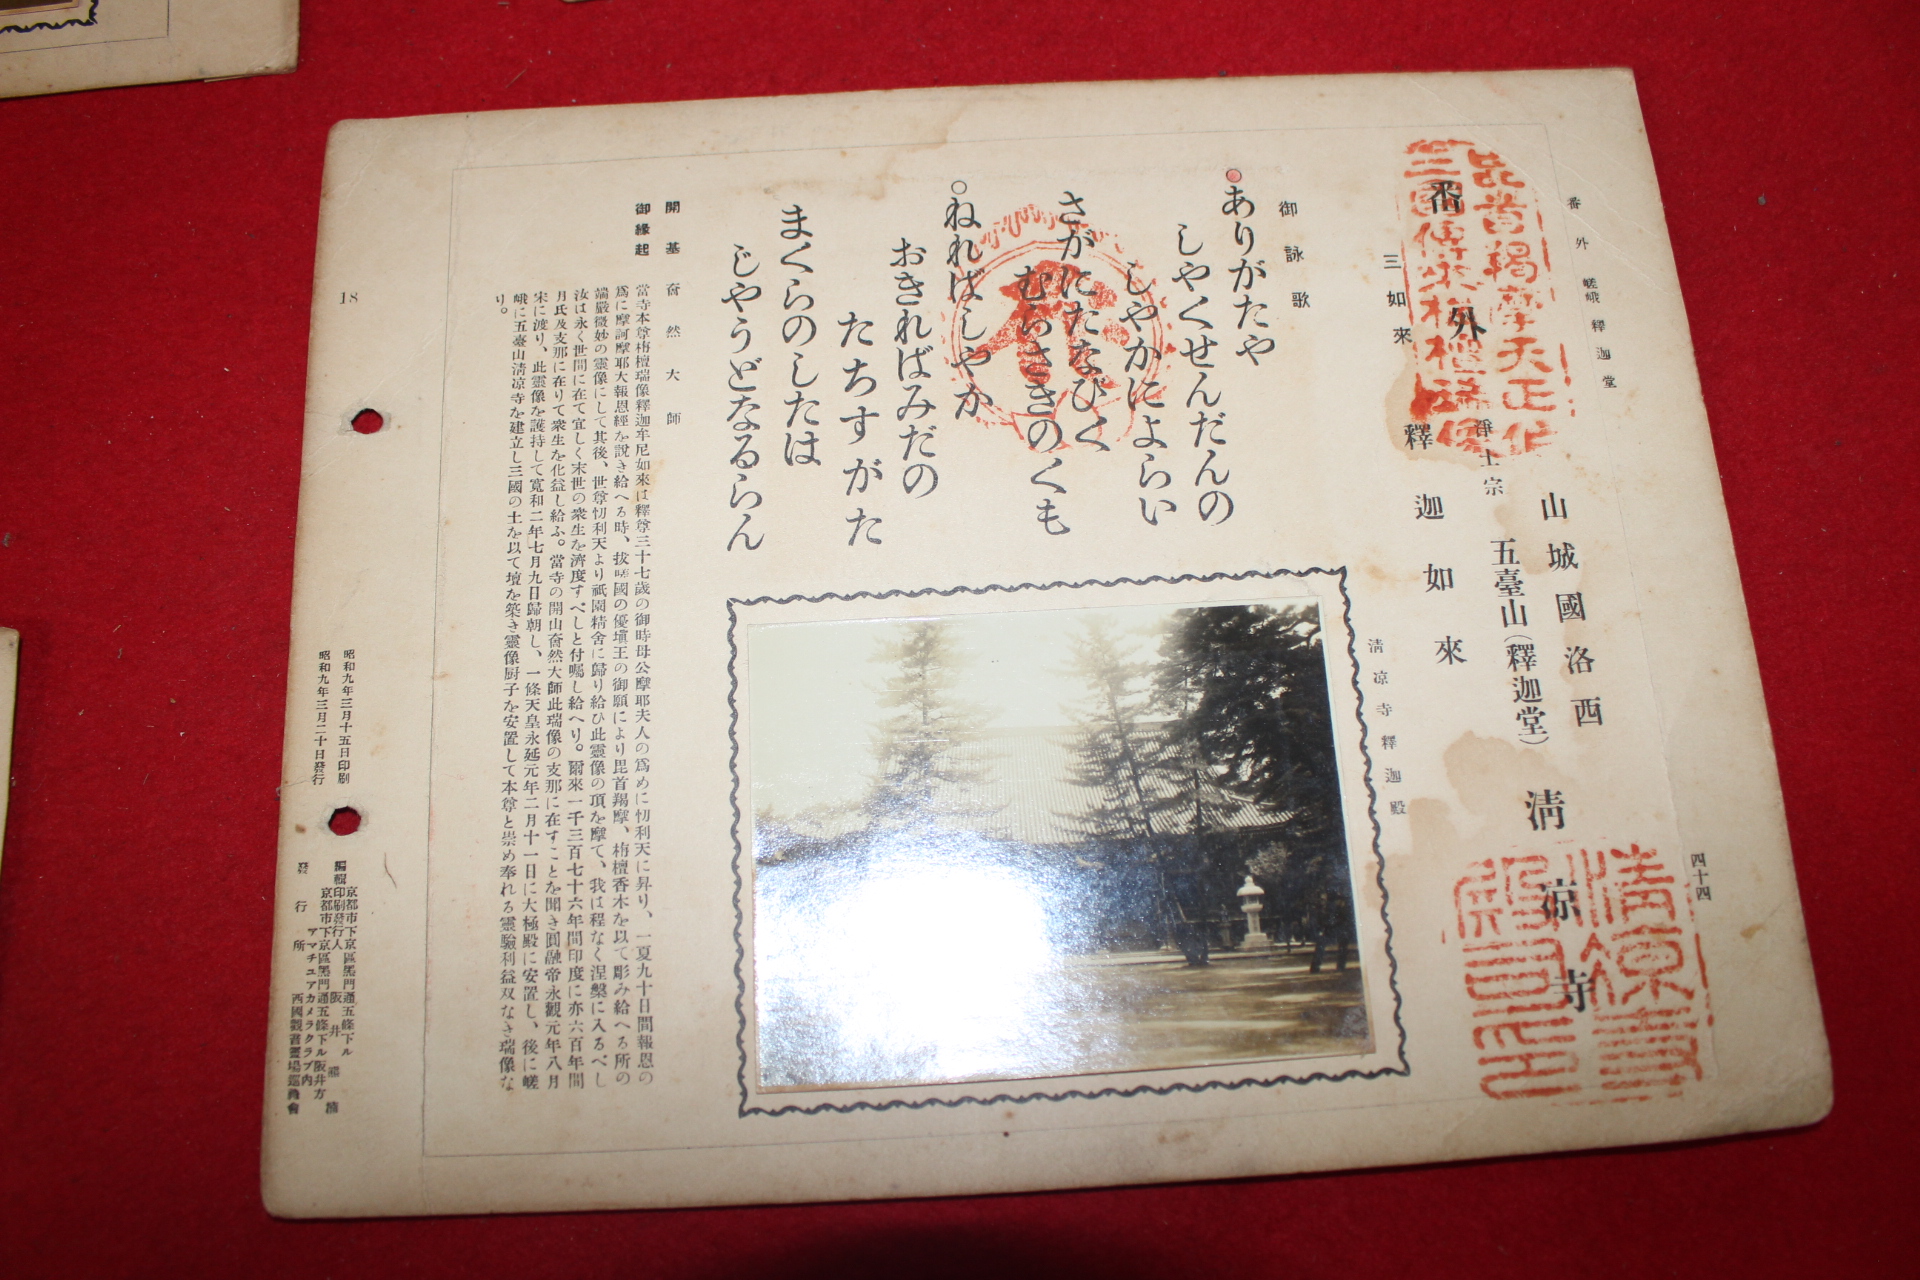 番外 嵯峨釋迦堂
四十四
毘首羯摩天正作
三國傳來栴檀瑞像
山城國洛西
番外
淨土宗 五臺山(釋迦堂) 淸凉寺
三如來 釋迦如來
淸凉寺釋迦殿
御詠歌
ありがたや
しやくせんだんの
しやかによらい
さがにたなびく
むらさきのくも
○ねればしやか
おきればみだの
たちすがた
まくらのしたは
じやうどなるらん
開基 奝然大師
御緣起
當寺本尊栴檀瑞像釋迦牟尼如來は釋尊三十七歲の御時母公摩耶夫人の爲めに忉利天に昇り、一夏九十日間報恩の
爲に摩訶摩耶大報恩經を說き給へる時、拔嗟國の優塡王の御願により毘首羯摩、栴檀香木を以て彫み給へる所の
端嚴微妙の靈像にして其後、世尊忉利天より祇園精舍に歸り給ひ此靈像の頂を摩て、我は程なく涅槃に入るべし
汝は永く世間に在て宜しく末世の衆生を濟度すべしと付囑し給へり。爾來一千三百七十六年間印度に亦六百年間
月氏及支那に在りて衆生を化益し給ふ。當寺の開山奝然大師此瑞像の支那に在すことを聞き圓融帝永觀元年八月
宋に渡り、此靈像を護持して寬和二年七月九日歸朝し、一條天皇永延元年二月十一日に大極殿に安置し、後に嵯
峨に五臺山淸凉寺を建立し三國の土を以て壇を築き靈像厨子を安置して本尊と崇め奉れる靈驗利益双なき瑞像な
り。
18
昭和九年三月十五日印刷
昭和九年三月二十日發行
京都市下京區黑門通五條下ル
編輯印刷發行人 阪井
京都市下京區黑門通五條下ル阪井方
アマチユアカメラクラブ內
發行所 西國觀音靈場巡